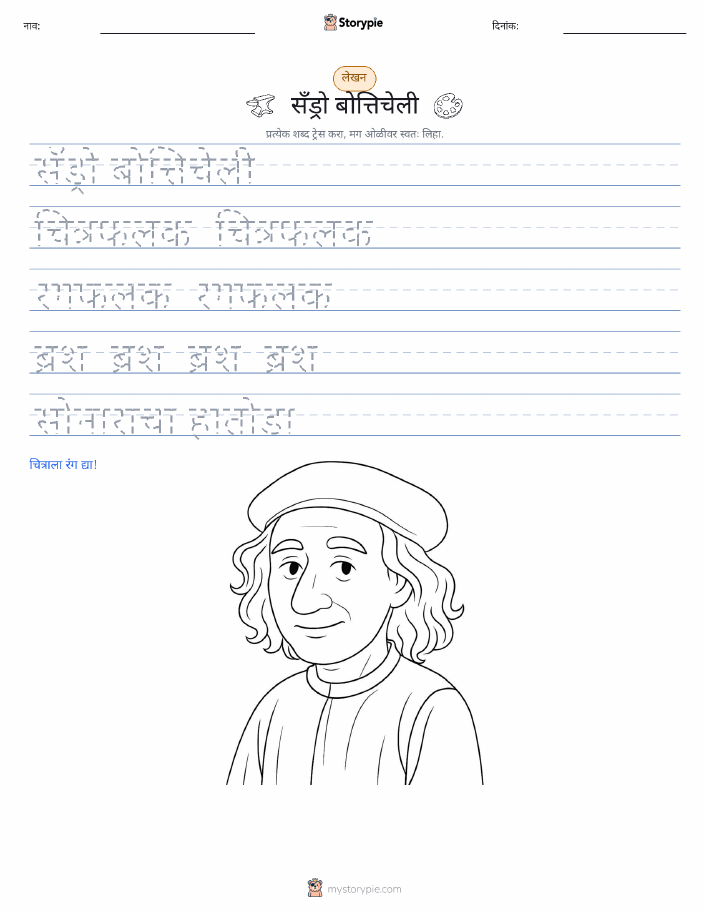 नाव:
Storypie
दिनांक:
लेखन
सँड्रो बोत्तिचेली
प्रत्येक शब्द ट्रेस करा, मग ओळीवर स्वतः लिहा.
सँड्रो बोत्तिचेली
चित्रफलक चित्रफलक
रंगफलक रंगफलक
ब्रश ब्रश ब्रश ब्रश
सोनाराचा हातोडा
चित्राला रंग द्या!
mystorypie.com